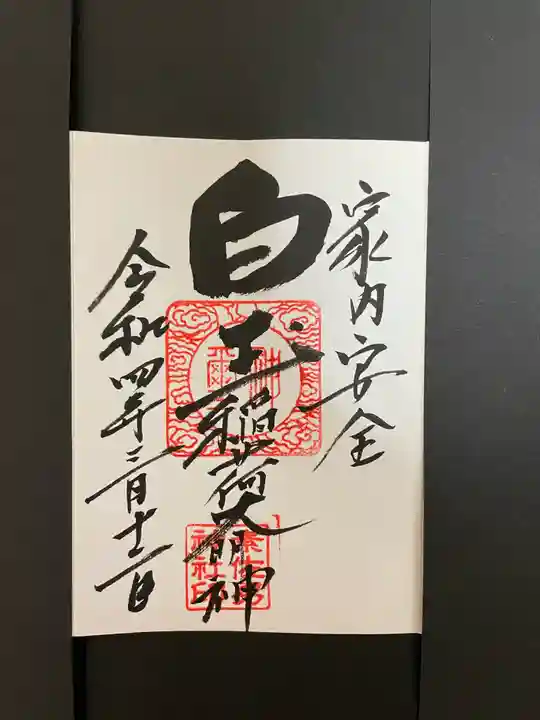 家内安全
白玉稲荷大明神
令和四年三月十二日